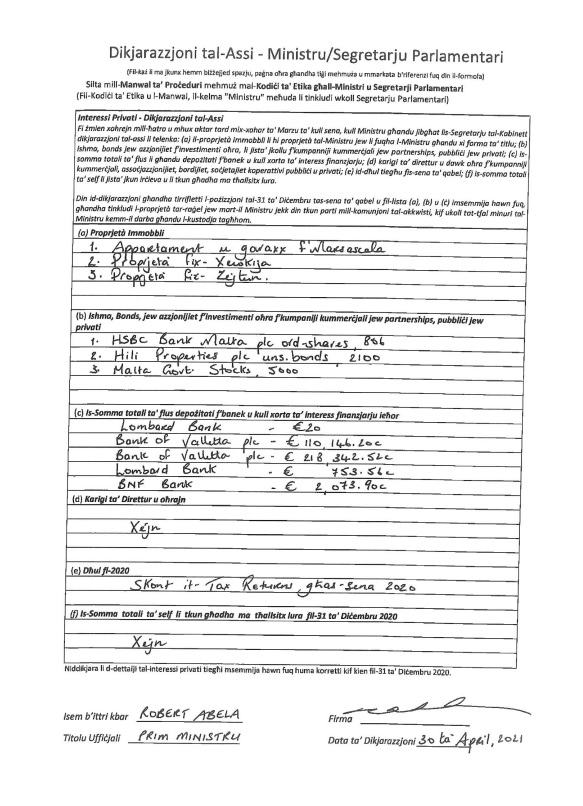 Dikjarazzjoni tal-Assi - Ministru/Segretarju Parlamentari
(Fil-każ li ma jkunx hemm biżżejjed spazju, paġna oħra għandha tiġi mehmuża u mmarkata b'riferenzi fuq din il-formola)
Silta mill-Manwal ta' Proċeduri mehmuż mal-Kodiċi ta' Etika għall-Ministri u Segretarji Parlamentari
(Fil-Kodiċi ta' Etika u l-Manwal, il-kelma "Ministru" meħuda li tinkludi wkoll Segretarju Parlamentari)
Interessi Privati - Dikjarazzjoni tal-Assi
Fi żmien xahrejn mill-ħatra u mhux aktar tard mix-xahar ta' Marzu ta' kull sena, kull Ministru għandu jibgħat lis-Segretarju tal-Kabinett
dikjarazzjoni tal-Assi li telenka: (a) il-proprjetà immobbli li hi proprjetà tal-Ministru jew li fuqha l-Ministru għandu xi forma ta' titlu; (b)
Ishma, bonds, jew azzjonijiet f'investimenti oħra, li jista' jkollu f'kumpaniji kummerċjali jew partnerships, pubbliċi jew privati; (c) is-
somma totali ta' flus li għandu depożitati f'banek u kull xorta ta' interess finanzjarju; (d) karigi ta' direttur u dawk oħra f'kumpaniji
kummerċjali, assoċjazzjonijiet, bordijiet, soċjetajiet koperattivi pubbliċi u privati; (e) id-dħul tiegħu fis-sena ta' qabel; (f) is-somma totali
ta' self li jista' jkun irċieva u li tkun għadha ma tħallsitx lura.
Din id-dikjarazzjoni għandha tirrifletti l-pożizzjoni tal-31 ta' Diċembru tas-sena ta' qabel u fil-lista (a), (b) u (c) imsemmija hawn fuq,
għandha tinkludi l-proprjetà tar-raġel jew mart il-Ministru jekk din tkun parti mill-komunjoni tal-akkwisti, kif ukoll tat-tfal minuri tal-
Ministru kemm-il darba għandu l-kustodja tagħhom.
(a) Proprjetà Immobbli
1. Appartament u garaxx f'Marsascala
2. Proprjetà fix-Xewkija
3. Proprjetà fiż-Żejtun.
(b) Ishma, Bonds, jew azzjonijiet f'investimenti oħra f'kumpaniji kummerċjali jew partnerships, pubbliċi jew
privati
1. HSBC Bank Malta plc ord-shares, 806
2. Hili Properties plc uns.bonds, 2100
3. Malta Govt. Stocks, 5000
(c) Is-Somma totali ta' flus depożitati f'banek u kull xorta ta' interess finanzjarju ieħor
Lombard Bank - €20
Bank of Valletta plc - € 110,146.20c
Bank of Valletta plc - € 218,342.52c
Lombard Bank - € 753.56c
BNF Bank - € 2,073.90c
(d) Karigi ta' Direttur u oħrajn
Xejn
(e) Dħul fl-2020
Skont it-Tax Returns għas-sena 2020
(f) Is-Somma totali ta' self li tkun għadha ma tħallsitx lura fil-31 ta' Diċembru 2020
Xejn
Niddikjara li d-dettalji tal-interessi privati tiegħi msemmija hawn fuq huma korretti kif kien fil-31 ta' Diċembru 2020.
Isem b'ittri kbar ROBERT ABELA
Firma
Titolu Uffiċjali PRIM MINISTRU
Data ta' Dikjarazzjoni 30 ta' April, 2021